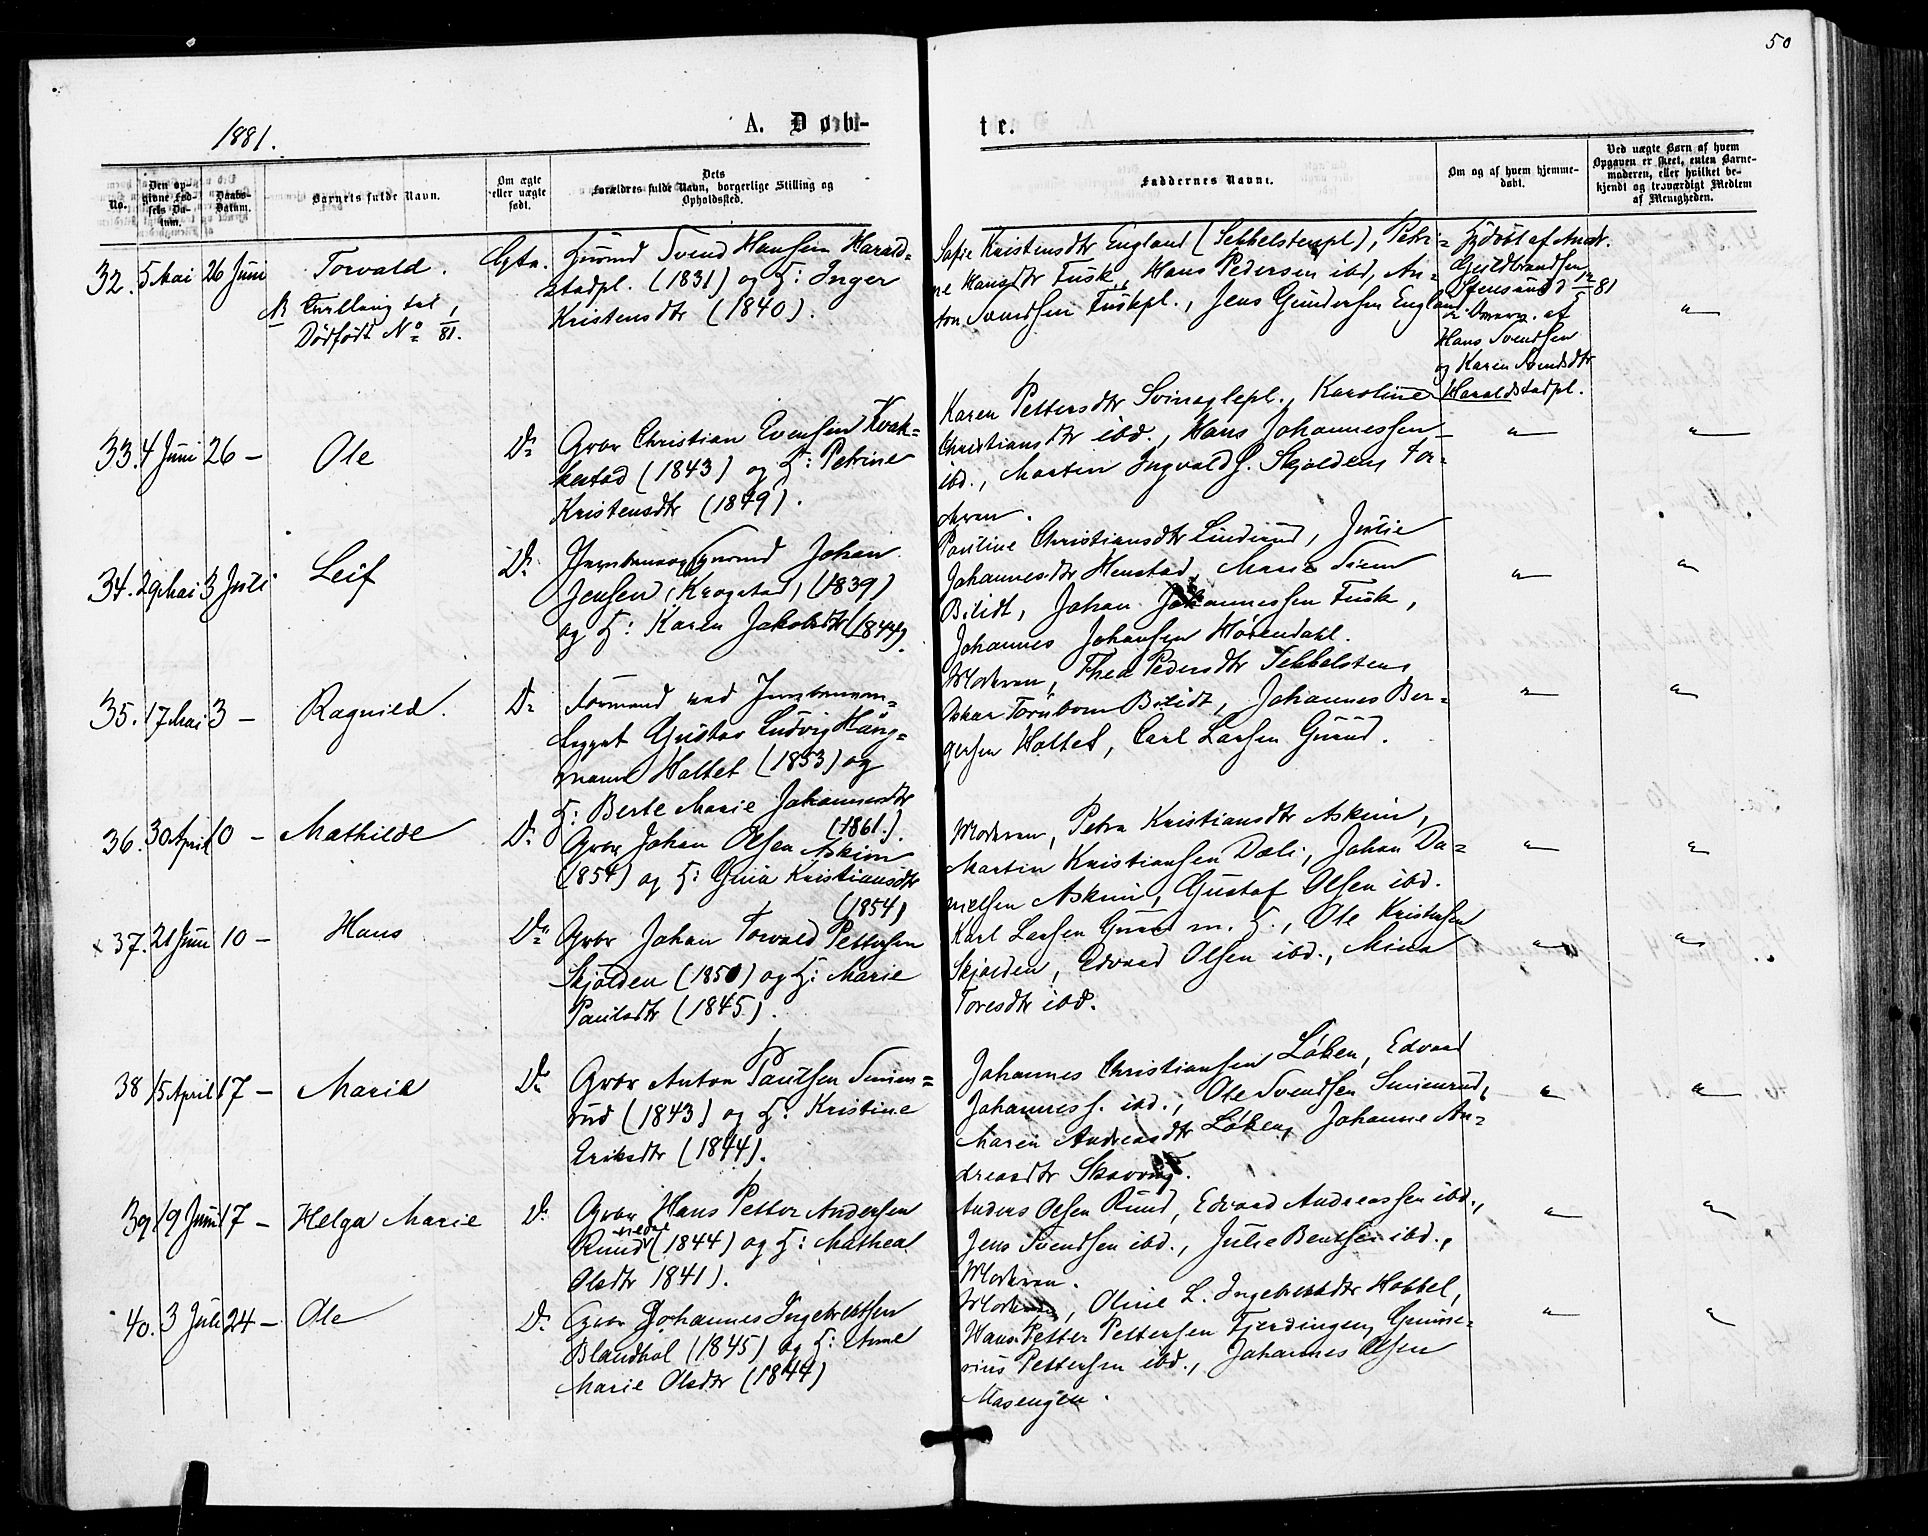 50
1881.
A. Døb-
te.
No.
Den op-
givne Fød-
sels Da-
tum.
Daabs-
Datum.
Barnets fulde Navn.
Om ægte
eller uægte
født.
Dets
Forældres fulde Navn, borgerlige Stilling og
Opholdssted.
Faddernes Navne.
Om og af hvem hjemme-
døbt.
Ved uægte Børn af hvem
Opgaven er skeet, enten Barne-
moderen, eller hvilket be-
kjendt og troværdigt Medlem
af Menigheden.
32. 5 Mai 26 Juni Torvald. Egte.
NB Tvilling til
Dødfødt No 1/81.
Husmd Svend Hansen Harald-
stadpl. (1831) og H: Inger
Kristensdtr (1840).
Sofie Kristensdtr England (Tekkelstenpl), Petri-
ne Hansdtr Fusk, Hans Pedersen ibd, An-
ton Svendsen Fuskpl., Jens Gundersen England
Hjdøbt af Andr.
Guldbrandsen
Stensrud 12/5 81
i Overv. af
Hans Svendsen
og Karen Svendsdtr
Haraldstadpl.
"
33. 4 Juni 26 - Ole Do
Gbr Christian Evensen Kvak-
kestad (1843) og H: Petrine
Kristensdtr (1849).
Karen Pettersdtr Svinaglepl., Karoline
Christiansdtr ibd., Hans Johannessen
ibd., Martin Ingvalds. Skjolden, Mo-
deren.
" "
34. 29 Mai 3 Juli Leif Do
Jernbanevogtermd Johan
Jensen, Krogstad, (1839)
og H: Karen Jakobsdtr (1844).
Pauline Christiansdtr Lindrud, Julie
Johannesdtr Henstad, Marie
Bilidt, Johan Johannessen Fusk,
Johannes Johansen Hørendahl.
" "
35. 17 Mai 3 - Ragnild. Do
Formand ved Jernbanean-
lægget Gustav Ludvig Haug-
mann Holtet (1853) og
H: Berte Marie Johannesdtr
(1861.).
Moderen, Thea Pedersdtr Tekkelsten,
Oskar Törnbom Bilidt, Johannes Ber-
gersen Holtet, Carl Larsen Gurud.
" "
36. 30 April 10 - Mathilde Do
Gbr Johan Olsen Askim
(1854) og H: Gina Kristiansdtr
(1854)
Moderen, Petra Kristiansdtr Askim,
Martin Kristiansen Dæli, Johan Da-
nielsen Askim, Gustaf Olsen ibd.
" "
x 37. 21 Juni 10 - Hans Do
Gbr Johan Torvald Pettersen
Skjolden (1850) og H: Marie
Paulsdtr (1845).
Karl Larsen Gurud m. H., Ole Kristensen
Skjolden, Edvard Olsen ibd., Mina
Toresdtr ibd.
" "
38 15 April 17 - Maria Do
Gbr Anton Paulsen Simen-
rud (1843) og H: Kristine
Eriksdtr (1844).
Johannes Christiansen Løken, Edvard
Johanness. ibd., Ole Svendsen Simenrud,
Maren Andreasdtr Løken, Johanne An-
dreasdtr Skavring.
" "
39. 19 Juni 17 - Helga Marie Do
Gbr Hans Petter Andersen
Ruud (1844) og H: Mathea
Olsdtr 1841).
Anders Olsen Ruud, Edvard Andreassen ibd.,
Jens Svendsen ibd., Julie Bentsen ibd.,
Moderen.
" "
40. 3 Juli 24 - Ole Do
Gbr Johannes Ingebretsen
Blandhol (1845) og H: Anne
Marie Olsdtr (1844)
Moderen, Oline L. Ingebretsdtr Hobbel,
Hans Petter Pettersen Fjerdingen, Gunne-
rius Pettersen ibd., Johannes Olsen
Masengen.
" "